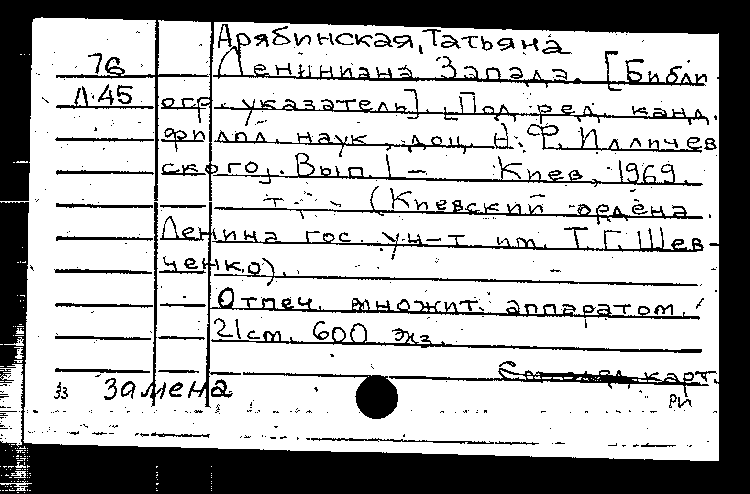 Арябинская, Татьяна
76 Лениниана Запада. [Библи-
Л.45 огр. указатель]. [Под ред. канд.
филол. наук, доц. Н.Ф. Илличев
ского]. Вып. 1 – Киев, 1969.
т. – (Киевский ордена
Ленина гос. ун-т им. Т.Г. Шев-
ченко).
Отпеч. множит. аппаратом.
21 см. 600 экз.
карт.
33 Замена РИ